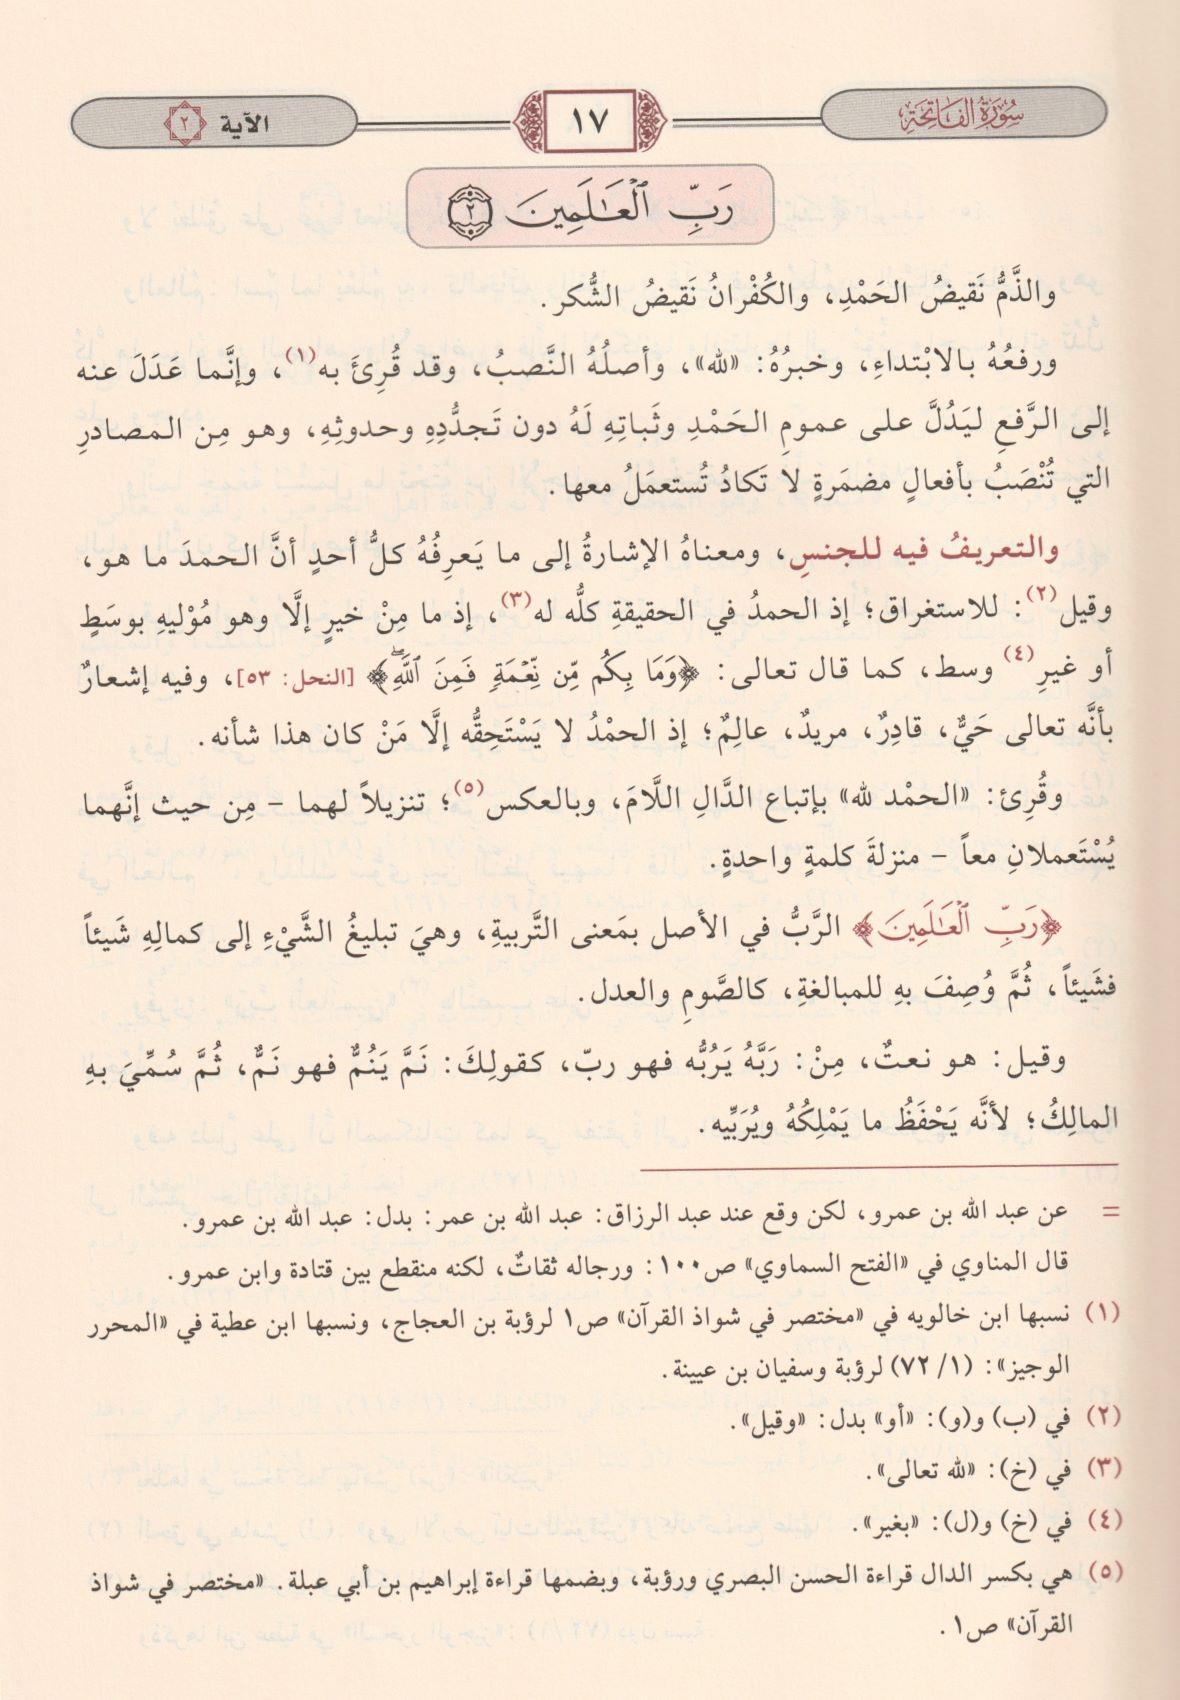 سُورَةُ الفَاتِحَة
١٧
الآية ٢
رَبِّ ٱلْعَـٰلَمِينَ ٢
والذَّمُّ نَقيضُ الحَمْدِ، والكُفْرانُ نَقيضُ الشُّكر.
ورفعُهُ بالابْتداءِ، وخبرُهُ: «لله»، وأصلُهُ النَّصبُ، وقد قُرِئَ به(١)، وإنَّما عَدَلَ عنه
إلى الرَّفعِ ليَدُلَّ على عمومِ الحَمْدِ وثَباتِهِ لَهُ دون تَجدُّدِهِ وحدوثِهِ، وهو مِن المصادرِ
التي تُنْصَبُ بأفعالٍ مضمَرةٍ لا تَكادُ تُستعمَلُ معها.
والتعريفُ فيه للجنسِ، ومعناهُ الإشارةُ إلى ما يَعرِفُهُ كلُّ أحدٍ أنَّ الحمدَ ما هو،
وقيل(٢): للاستغراق؛ إذ الحمدُ في الحقيقةِ كلُّه له(٣)، إذ ما مِنْ خيرٍ إلَّا وهو مُوْليهِ بوسَطٍ
أو غيرِ(٤) وسط، كما قال تعالى: ﴿وَمَا بِكُم مِّن نِّعْمَةٍ فَمِنَ ٱللَّهِ﴾ [النحل: ٥٣]، وفيه إشعارٌ
بأنَّه تعالى حَيٌّ، قادِرٌ، مريدٌ، عالِمٌ؛ إذ الحمْدُ لا يَسْتَحِقُّه إلَّا مَنْ كان هذا شأنه.
وقُرِئ: «الحمْد لله» بإتباع الدَّالِ اللَّامَ، وبالعكس(٥)؛ تنزيلاً لهما - مِن حيث إنَّهما
يُسْتَعملانِ معاً - منزلةَ كلمةٍ واحدةٍ.
﴿رَبِّ ٱلْعَـٰلَمِينَ﴾ الرَّبُّ في الأصل بمَعنى التَّربيةِ، وهيَ تبليغُ الشَّيْءِ إلى كمالِهِ شَيئاً
فشَيئاً، ثُمَّ وُصِفَ بهِ للمبالغةِ، كالصَّومِ والعدل.
وقيل: هو نعتٌ، مِنْ: رَبَّهُ يَرُبُّه فهو ربّ، كقولِكَ: نَمَّ يَنُمُّ فهو نَمٌّ، ثُمَّ سُمِّيَ بهِ
المالِكُ؛ لأنَّه يَحْفَظُ ما يَمْلِكُهُ ويُرَبِّيه.
= عن عبد الله بن عمرو، لكن وقع عند عبد الرزاق: عبد الله بن عمر: بدل: عبد الله بن عمرو.
قال المناوي في «الفتح السماوي» ص١٠٠: ورجاله ثقاتٌ، لكنه منقطع بين قتادة وابن عمرو.
(١) نسبها ابن خالويه في «مختصر في شواذ القرآن» ص١ لرؤبة بن العجاج، ونسبها ابن عطية في «المحرر
الوجيز»: (١/ ٧٢) لرؤبة وسفيان بن عيينة.
(٢) في (ب) و(و): «أو» بدل: «وقيل».
(٣) في (خ): «لله تعالى».
(٤) في (خ) و(ل): «بغير».
(٥) هي بكسر الدال قراءة الحسن البصري ورؤبة، وبضمها قراءة إبراهيم بن أبي عبلة. «مختصر في شواذ
القرآن» ص١.